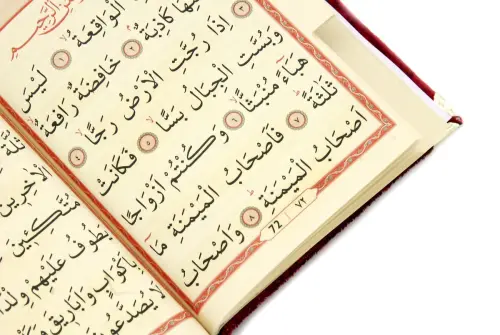 الرَّحِيمِ
الْوَاقِعَةُ ١ لَيْسَ
كَاذِبَةٌ ٢ خَافِضَةٌ رَافِعَةٌ
٣ اِذَا رُجَّتِ الْاَرْضُ رَجًّا ٤
وَبُسَّتِ الْجِبَالُ بَسًّا ٥ فَكَانَتْ
هَبَاءً مُنْبَثًّا ٦ وَكُنْتُمْ اَزْوَاجًا
ثَلٰثَةً ٧ فَاَصْحَابُ الْمَيْمَنَةِ مَا
اَصْحَابُ الْمَيْمَنَةِ ٨ وَاَصْحَابُ
72 ٧٢
ثُلَّةٌ
الْاٰخِرِينَ
مُتَّكِـِٔينَ
يَطُوفُ عَلَيْهِمْ
بِاَكْوَابٍ وَاَبَارِيقَ
لَا